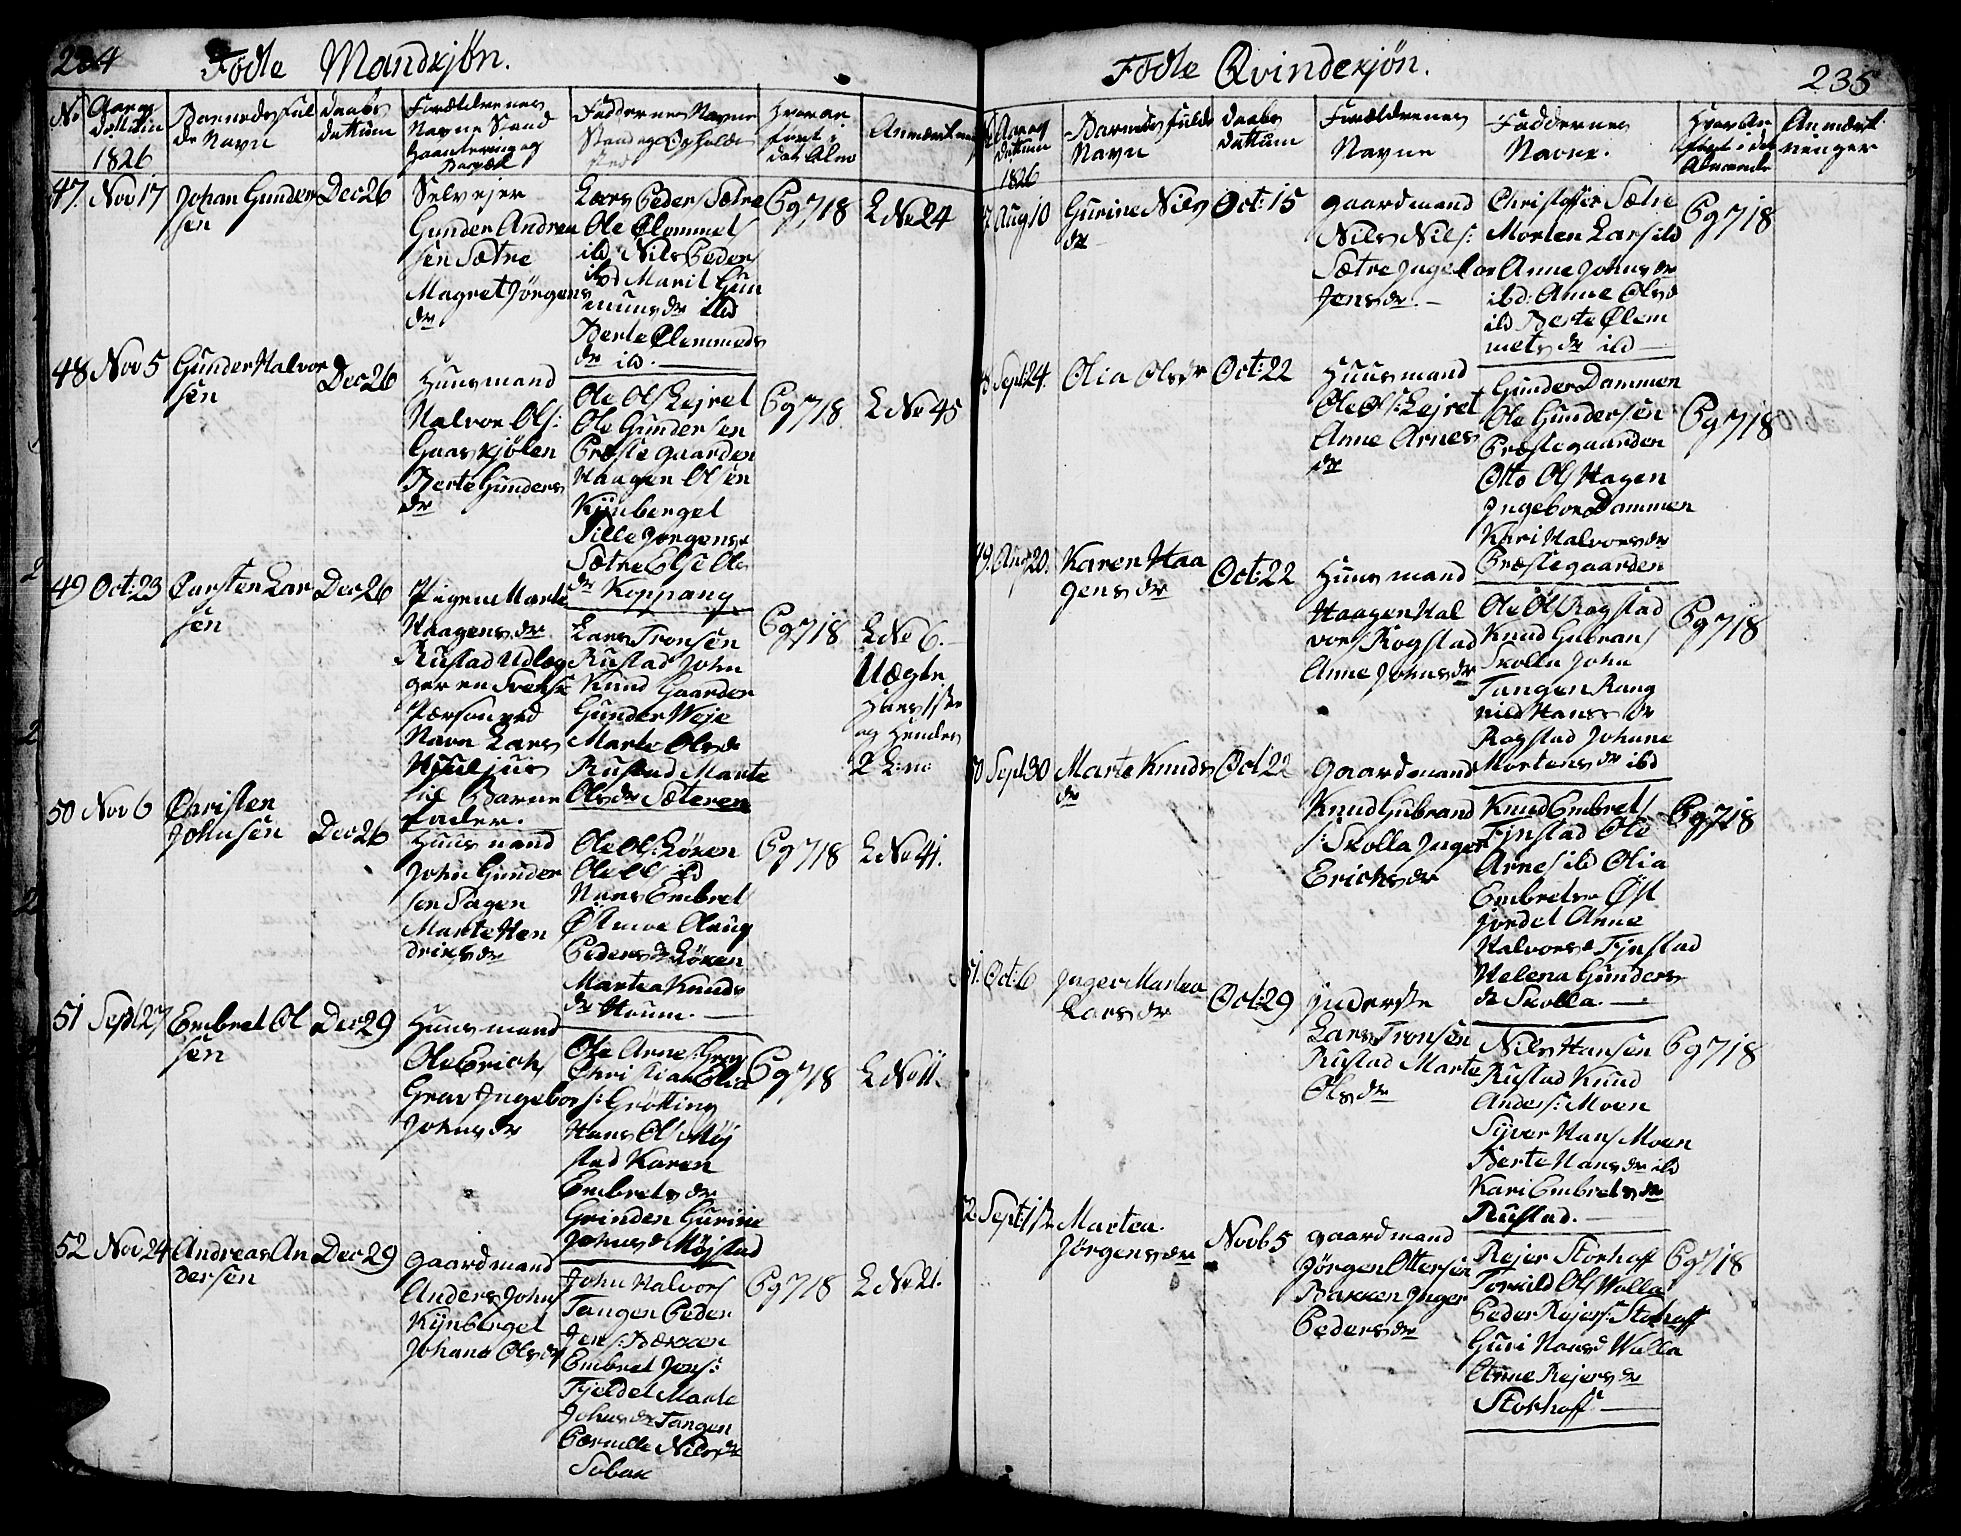 234
Fødte Mandkjøn.
No
Aar og
Dattum
1826
Barnedes ful
de Navn
Daabs
dattum
Forældrenes
Navne Stand
Haantering og
Faddernes Navne
Stand og Opholds
sted
Hvor an
ført i
det Alm
Anmærkning
47
Nov 17
Johan Gunder
sen
Dec 26
Selvejer
Gunder Andrea
sen Sætre
Magret Jørgens
dr
Lars Peders Sætre
Ole Clommet
ibd Nils Peders
ibd Marit Gun
muns dr ibd
Berte Clemmeds
dr ibd.
Pg 718
L No 24
48
Nov 5
Gunder Halvor
sen
Dec 26
Huusmand
Halvor Ols:
Gaaskjølen
Berte Gunders
dr
Ole Ols Lejret
Ole Gundersen
Præstegaarden
Haagen Olsen
Kjinberget
Sille Jørgens dr
Sætre Else Ols
dr Koppang
Pg 718
L No 45
49
Oct: 23
Carsten Lar
sen
Dec 26
Pigen Marte
Haagens dr
Rustad Udlæg
ger en Svensk
Person ved
Navn Lars
til Barne
fader.
Lars Tronsen
Rustad John
Knud Gaarder
Gunder Weje
Marte Ols dr
Rustad Marte
Ols dr Sæteren
Pg 718
L No 6.
Uægte
Hans 1ste
og Hendes
2 L:m:
50
Nov 6
Christen
Johnsen
Dec 26
Huusmand
John Gunder
sen Sagen
Marte Hen
driks dr
Ole Ols: Løken
Ole Ols ibd
Hans Embret
Østmoe Olaug
Peders dr Løken
Martea Knuds
dr Houm.
Pg 718
L No 41.
51
Sept 27
Embret Ol
sen
Dec 29
Huusmand
Ole Erichs
Grav Ingebor
Johns dr
Ole Arnes: Grav
Christian Elia
s: Grøtting
Hans Ols Møj
stad Karen
Embrets dr
Grinden Gurine
Johns dr Møjstad
Pg 718
L No 11.
52
Nov 24
Andreas An
dersen
Dec 29
Gaardmand
Anders Johns
Kjinberget
Johane Ols dr
John Halvors
Tangen Peder
Jens: Bækken
Embret Jens:
Fjeldet Marte
Johns dr Tangen
Pernille Nils dr
Sobak
Pg 718
L No 21.
235
Fødte Qvindekjøn.
Aar og
dattum
1826
Barnets fulde
Navn
Daabs
dattum
Forældrenes
Navne
Faddernes
Navne.
Hvor An
ført i det
Almindel
Anmærk
ninger
7
Aug 10
Gurine Nils
dr
Oct: 15
Gaardmand
Nils Nils:
Sætre Ingebor
Jens dr
Christoffer Sætre
Morten Lars ibd
Anne Johns dr
ibd: Anne Ols dr
ibd Berte Clem
mets dr ibd
Pg 718
8
Sept: 24.
Olia Ols dr
Oct: 22
Huusmand
Ole Ols: Lejret
Anne Arnes
dr
Gunder Dammen
Ole Gundersen
Præstegaarden
Otto Ols Hagen
Ingebor Dammen
Kari Halvors dr
Præstegaarden
Pg 718
49.
Aug 20.
Karen Haa
gens dr
Oct: 22
Huusmand
Haagen Hal
vors Rogstad
Anne Johns dr
Ole Ols Rogstad
Knud Gubran
Skolla John
Tangen Rang
nild Hans dr
Rogstad Johane
Mortens dr ibd
Pg 718
50
Sept 30
Marte Knuds
dr
Oct 22
Gaardmand
Knud Gubrand
s: Skolla Inger
Erichs dr
Knud Embrets
Tynstad Ole
Arnes ibd Olia
Embrets dr Øst
jordet Anne
Halvors dr Tynstad
Helena Gunders
dr Skolla.
Pg 718
51.
Oct: 6
Inger Martea
Lars dr
Oct: 29
Inderste
Lars Tronsen
Rustad Marte
Ols dr
Nils Hansen
Rustad Knud
Anders: Moen
Syver Hans Moen
Berte Hans dr ibd
Kari Embrets dr
Rustad.
Pg 718
52
Sept: 1ste
Martea
Jørgens dr
Novb 5
Gaardmand
Jørgen Ottersen
Bakken Inger
Peders dr
Rejer Storhoff
Torild Ols Wolla
Peder Rejers: Storhoff
Guri Hans dr Wolla
Anne Rejers dr
Storhoff
Pg 718